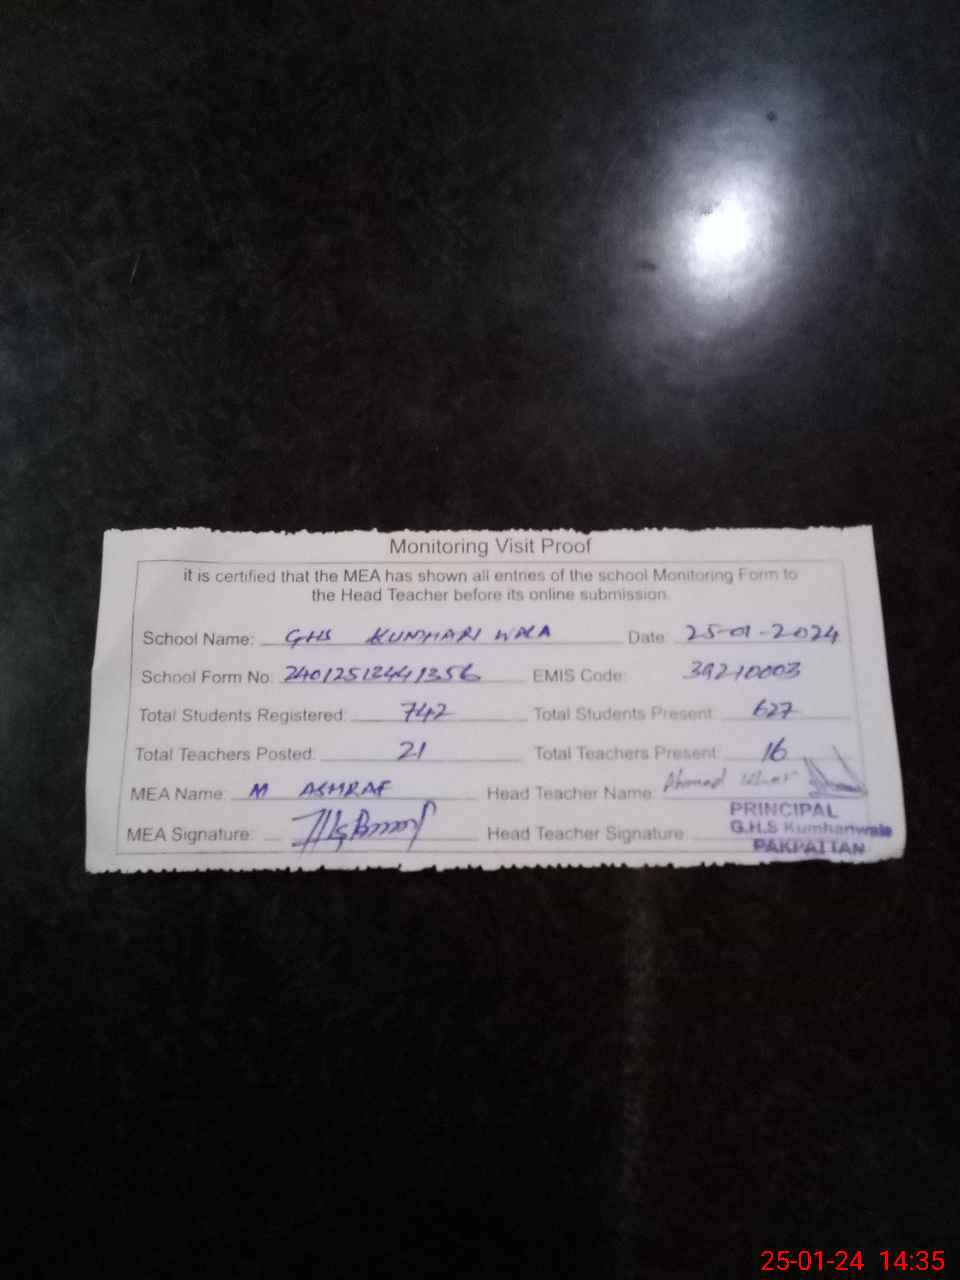 Monitoring Visit Proof
it is certified that the MEA has shown all entries of the school Monitoring Form to
the Head Teacher before its online submission.
School Name: GHS KUMHARI WALA Date: 25-01-2024
School Form No: 24012512441356 EMIS Code: 39210003
Total Students Registered: 742 Total Students Present: 627
Total Teachers Posted: 21 Total Teachers Present: 16
MEA Name: M ASHRAF Head Teacher Name: Ahmad
MEA Signature: Head Teacher Signature
PRINCIPAL
G.H.S Kumhariwala
PAKPATTAN
25-01-24 14:35